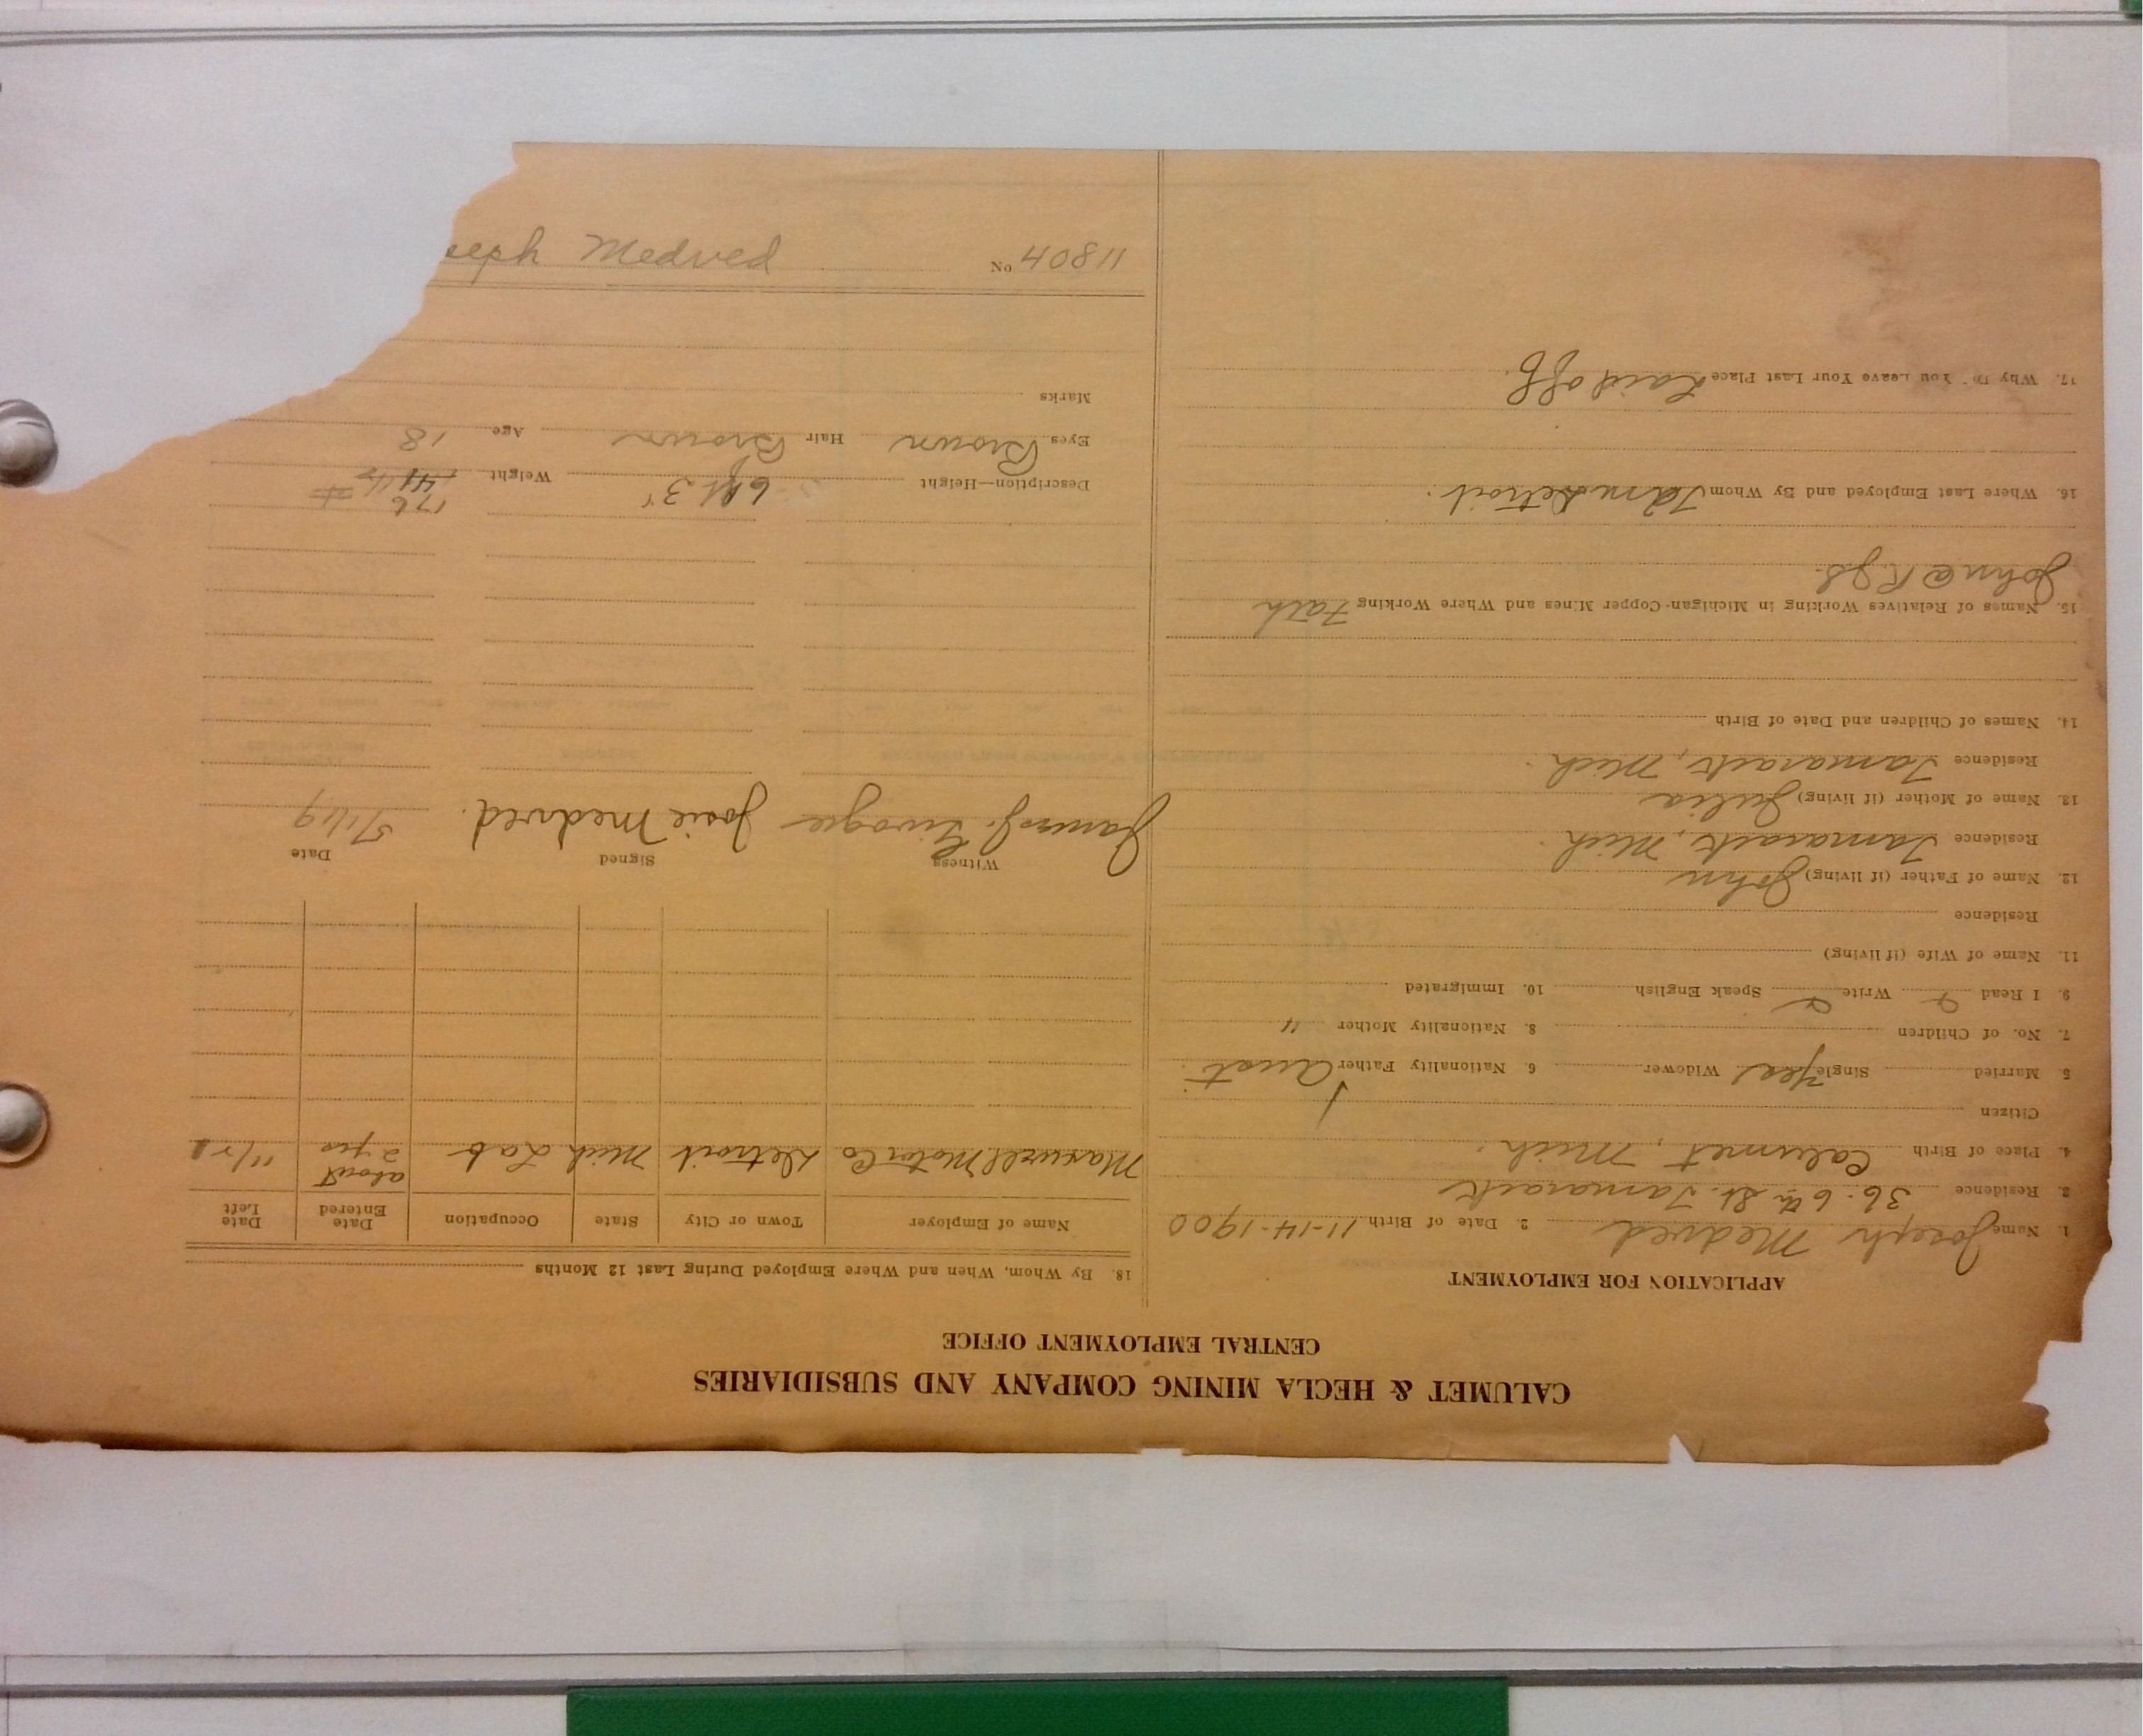 CALUMET & HECLA MINING COMPANY AND SUBSIDIARIES
CENTRAL EMPLOYMENT OFFICE
APPLICATION FOR EMPLOYMENT
1. Name Joseph Medved 2. Date of Birth 11-14-1900
3. Residence 36. 6th St. Tamarack
4. Place of Birth Calumet, Mich.
Citizen
5. Married Single Yes Widower 6. Nationality Father Aust.
7. No. of Children 8. Nationality Mother "
9. I Read Write Speak English 10. Immigrated
11. Name of Wife (if living)
Residence
12. Name of Father (if living) John
Residence Tamarack, Mich.
13. Name of Mother (if living) Julia
Residence Tamarack, Mich.
14. Names of Children and Date of Birth
15. Names of Relatives Working in Michigan Copper Mines and Where Working Fath
John @
16. Where Last Employed and By Whom Detroit.
17. Why You Leave Your Last Place Laid off.
18. By Whom, When and Where Employed During Last 12 Months
Name of Employer Town or City State Occupation Date Entered Date Left
Maxwell Motor Co Detroit Mich Lab about 2 yrs
Witness Signed Date
Josie Medved.
176
Description—Height 6 ft 3" Weight
Eyes Brown Hair Brown Age 18
Marks
No 40811 seph Medved